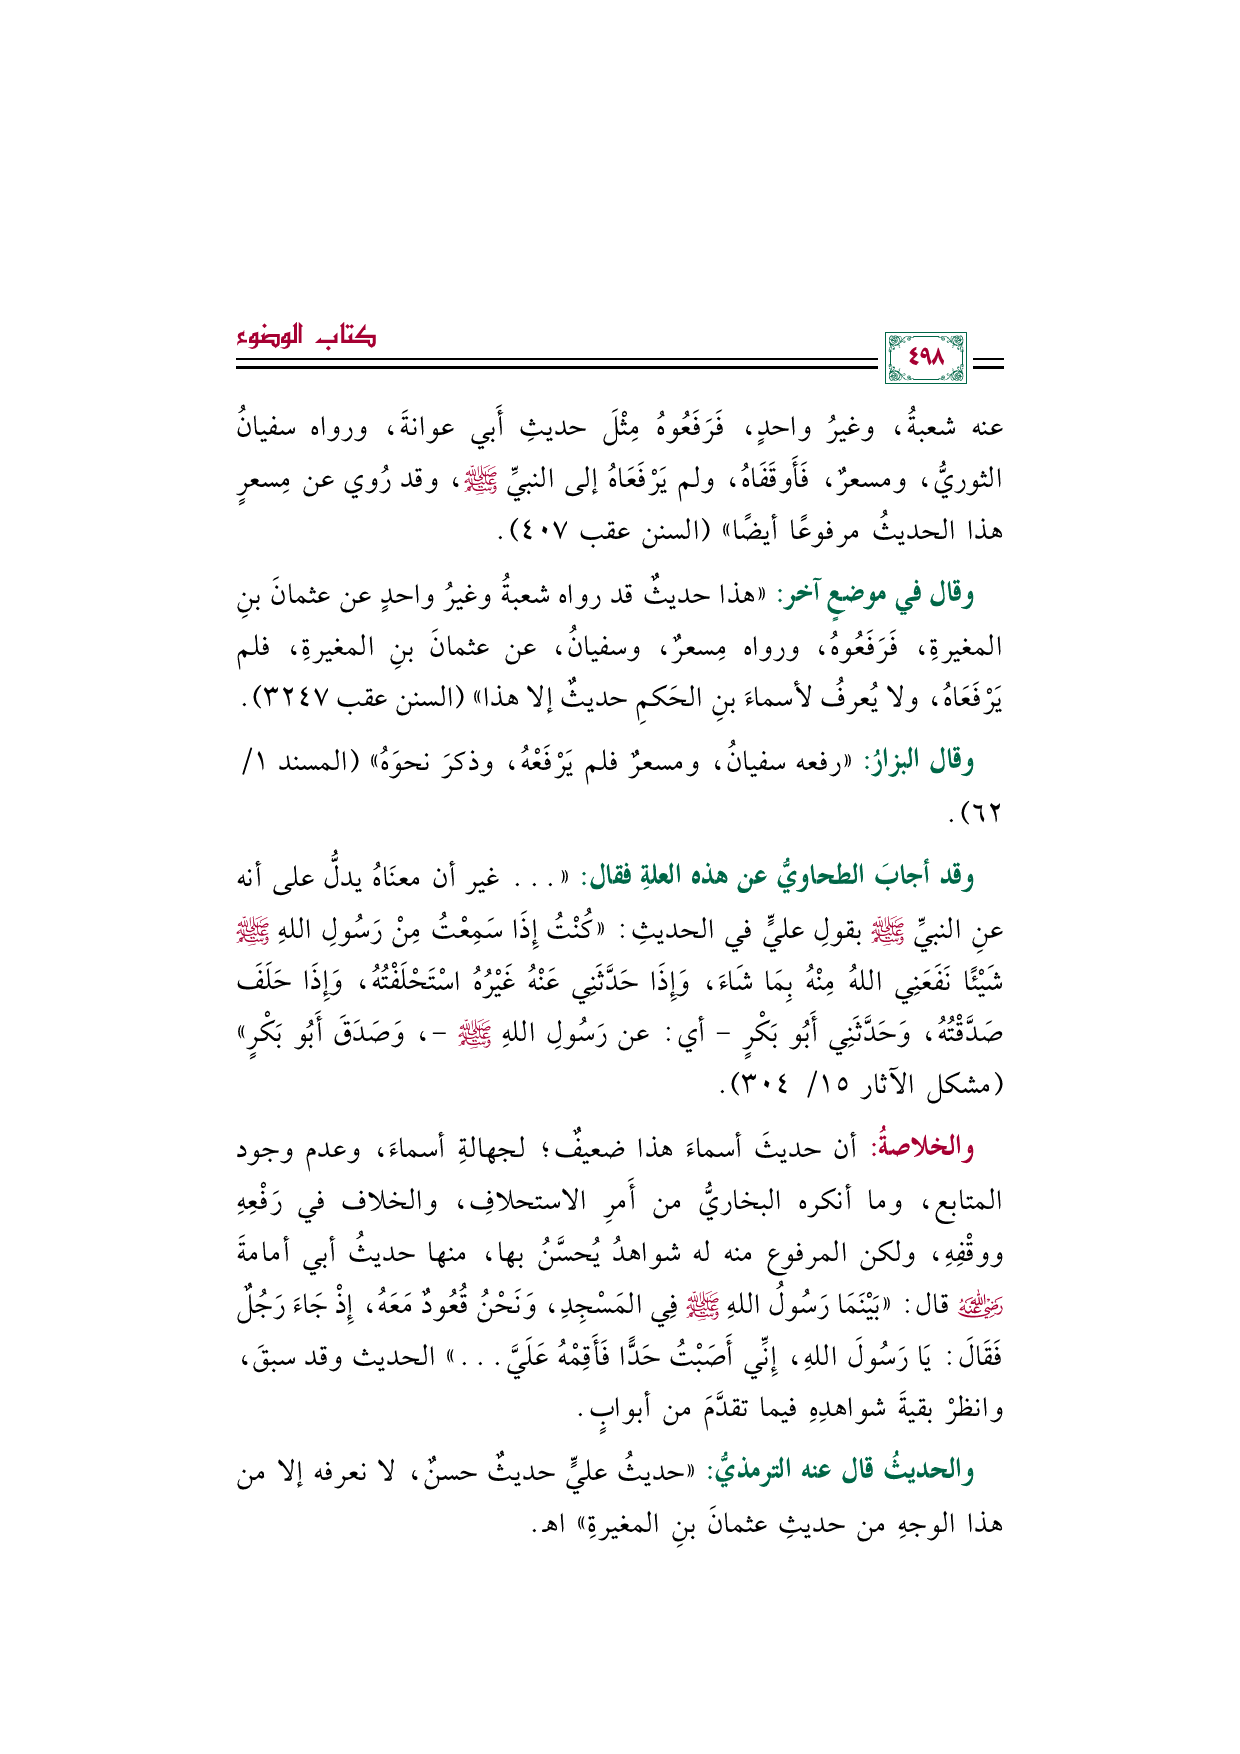 كتاب الوضوء
٤٩٨
عنه شعبةُ، وغيرُ واحدٍ، فَرَفَعُوهُ مِثْلَ حديثِ أَبي عوانةَ، ورواه سفيانُ
الثوريُّ، ومسعرٌ، فَأَوقَفَاهُ، ولم يَرْفَعَاهُ إلى النبيِّ ﷺ، وقد رُوي عن مِسعرٍ
هذا الحديثُ مرفوعًا أيضًا» (السنن عقب ٤٠٧).
وقال في موضعٍ آخر: «هذا حديثٌ قد رواه شعبةُ وغيرُ واحدٍ عن عثمانَ بنِ
المغيرةِ، فَرَفَعُوهُ، ورواه مِسعرٌ، وسفيانُ، عن عثمانَ بنِ المغيرةِ، فلم
يَرْفَعَاهُ، ولا يُعرفُ لأسماءَ بنِ الحَكمِ حديثٌ إلا هذا» (السنن عقب ٣٢٤٧).
وقال البزارُ: «رفعه سفيانُ، ومسعرٌ فلم يَرْفَعْهُ، وذكرَ نحوَهُ» (المسند ١/
٦٢).
وقد أجابَ الطحاويُّ عن هذه العلةِ فقال: «... غير أن معنَاهُ يدلُّ على أنه
عنِ النبيِّ ﷺ بقولِ عليٍّ في الحديثِ: «كُنْتُ إِذَا سَمِعْتُ مِنْ رَسُولِ اللهِ ﷺ
شَيْئًا نَفَعَنِي اللهُ مِنْهُ بِمَا شَاءَ، وَإِذَا حَدَّثَنِي عَنْهُ غَيْرُهُ اسْتَحْلَفْتُهُ، وَإِذَا حَلَفَ
صَدَّقْتُهُ، وَحَدَّثَنِي أَبُو بَكْرٍ - أي: عن رَسُولِ اللهِ ﷺ -، وَصَدَقَ أَبُو بَكْرٍ»
(مشكل الآثار ١٥/ ٣٠٤).
والخلاصةُ: أن حديثَ أسماءَ هذا ضعيفٌ؛ لجهالةِ أسماءَ، وعدم وجود
المتابع، وما أنكره البخاريُّ من أَمرِ الاستحلافِ، والخلاف في رَفْعِهِ
ووقْفِهِ، ولكن المرفوع منه له شواهدُ يُحسَّنُ بها، منها حديثُ أبي أمامةَ
رضي الله عنه قال: «بَيْنَمَا رَسُولُ اللهِ ﷺ فِي المَسْجِدِ، وَنَحْنُ قُعُودٌ مَعَهُ، إِذْ جَاءَ رَجُلٌ
فَقَالَ: يَا رَسُولَ اللهِ، إِنِّي أَصَبْتُ حَدًّا فَأَقِمْهُ عَلَيَّ...» الحديث وقد سبقَ،
وانظرْ بقيةَ شواهدِهِ فيما تقدَّمَ من أبوابٍ.
والحديثُ قال عنه الترمذيُّ: «حديثُ عليٍّ حديثٌ حسنٌ، لا نعرفه إلا من
هذا الوجهِ من حديثِ عثمانَ بنِ المغيرةِ» اهـ.